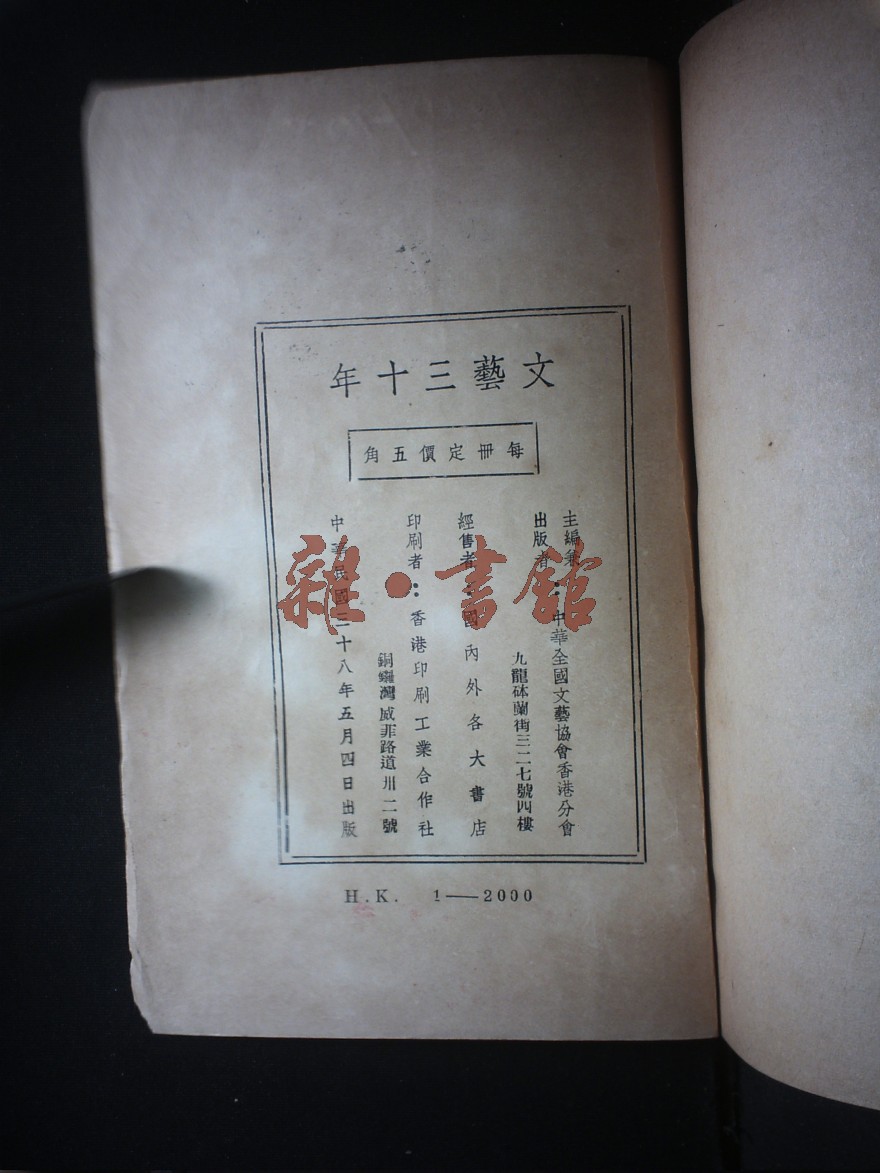 文藝三十年
每冊定價五角
主編兼
出版者：中華全國文藝協會香港分會
九龍砵蘭街三二七號四樓
經售者：國內外各大書店
印刷者：香港印刷工業合作社
銅鑼灣威菲路道卅二號
中華民國三十八年五月四日出版
H.K. 1—2000
雜·書館